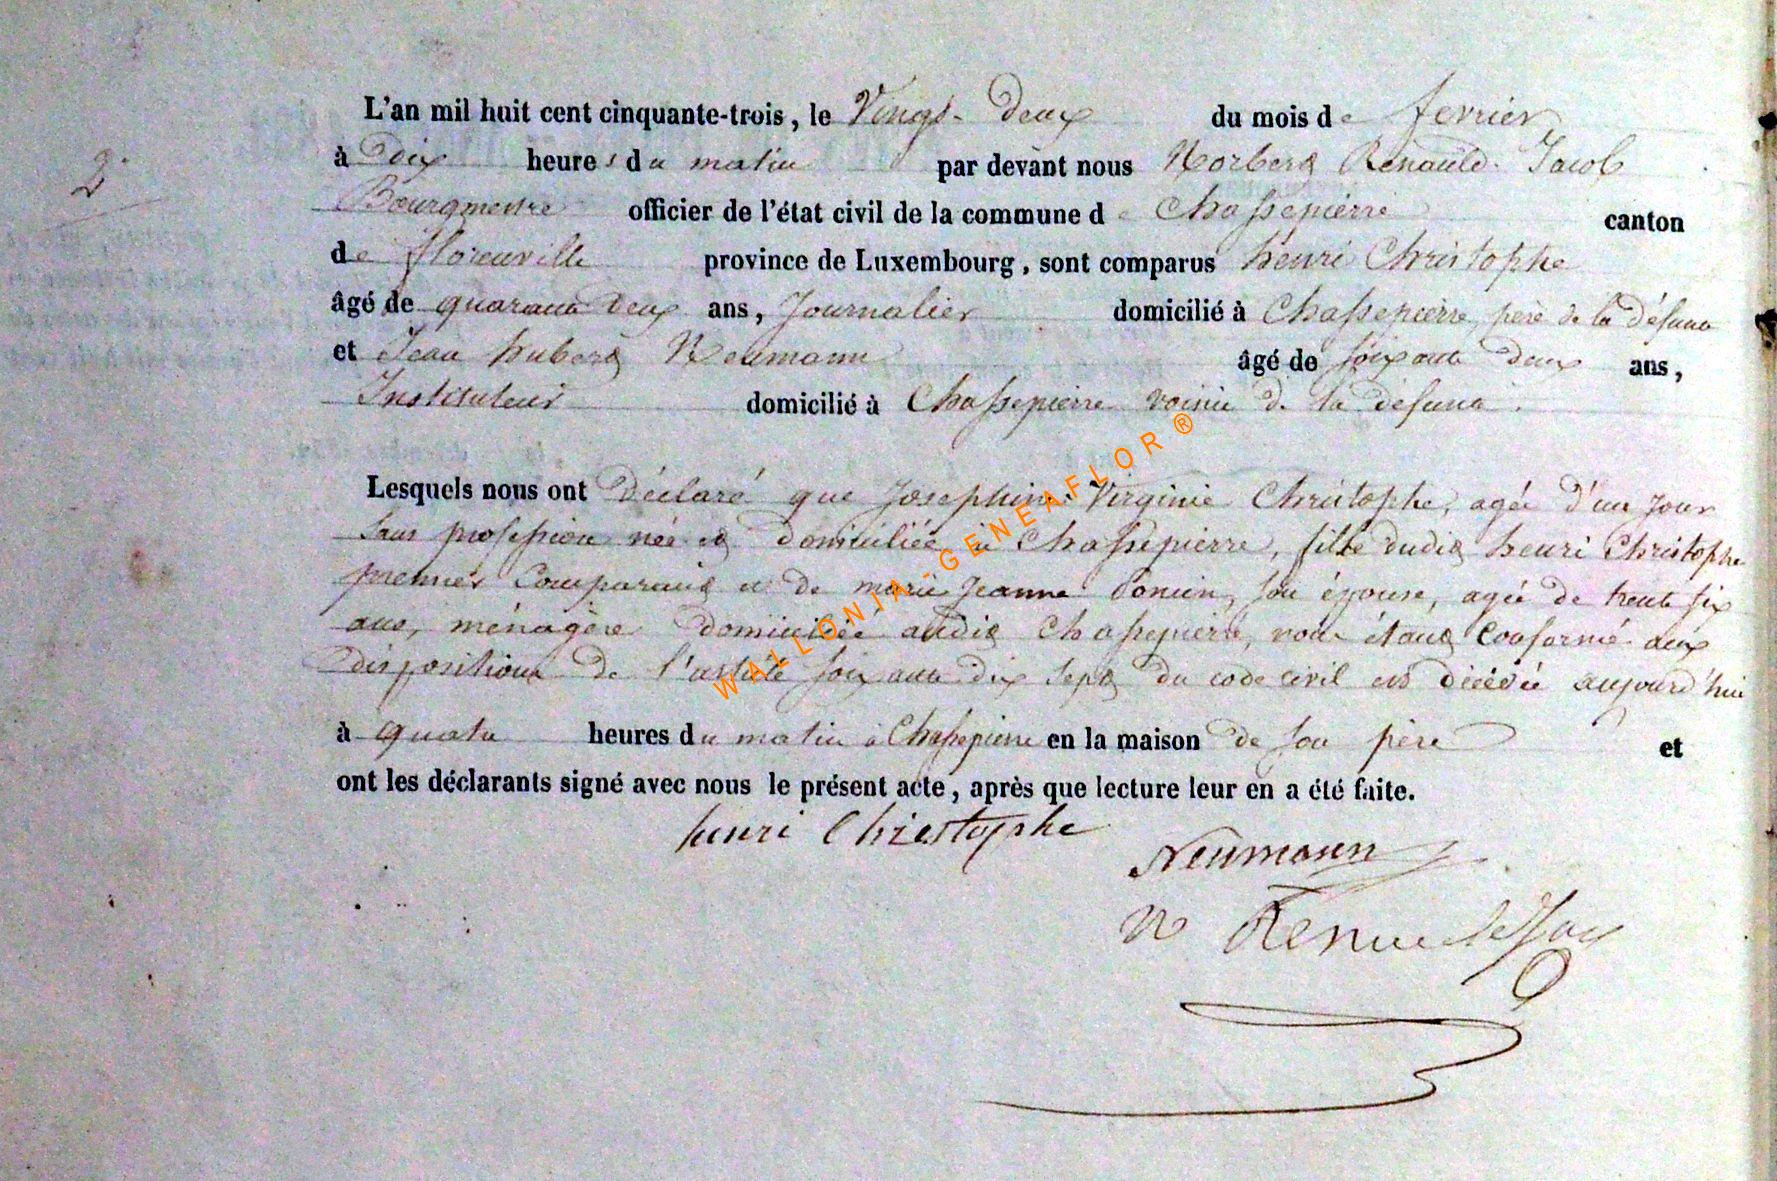 L'an mil huit cent cinquante-trois, le Vingt-deux du mois de fevrier
2.
à dix heures du matin par devant nous Norbert Renauld Jacob
Bourgmestre officier de l'état civil de la commune de Chassepierre canton
de florenville province de Luxembourg, sont comparus henri Christophe
âgé de quarante deux ans, Journalier domicilié à Chassepierre, père de la défunte
et Jean hubert Neumann âgé de soixante deux ans,
Instituteur domicilié à Chassepierre voisin de la défunte.
Lesquels nous ont déclaré que Josephine Virginie Christophe, agée d'un jour
sans profession née et domiciliée à Chassepierre, fille dudit henri Christophe
premier Comparant et de marie Jeanne son épouse, agée de trente six
ans, ménagère domiciliée audit Chassepierre, nous étant Conformé aux
dispositions de l'article soixante dix sept du code civil est décédée aujourd'hui
à quatre heures du matin à Chassepierre en la maison de son père et
ont les déclarants signé avec nous le présent acte, après que lecture leur en a été faite.
henri Christophe
Neumann
N
WALLONIA-GENEAFLOR ®